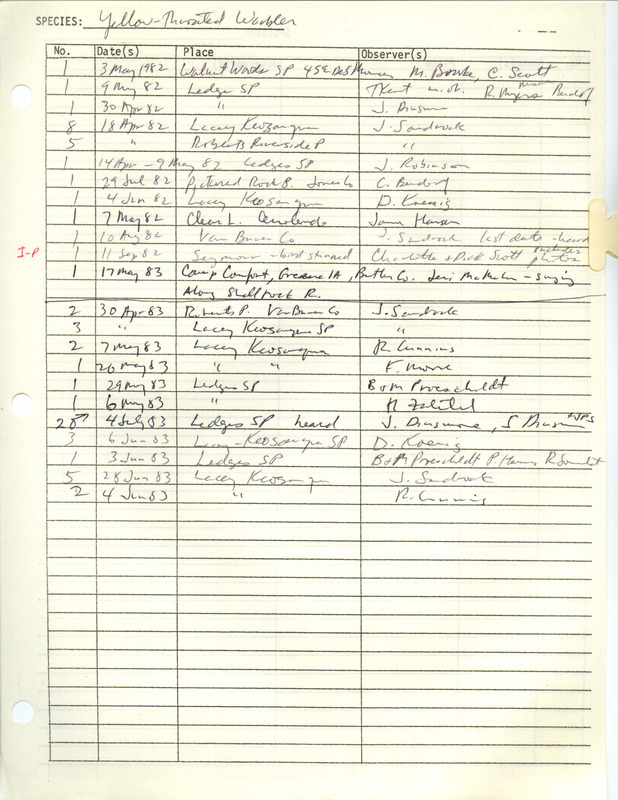 SPECIES: Yellow-Throated Warbler
No. Date(s) Place Observer(s)
1 3 May 1982 Walnut Woods SP 4 SE Des Moines M. Bowke, C. Scott
1 9 May 82 Ledges SP TKent m.ob. R. Myers Bendorf
1 30 Apr 82 " J. Dinsmore
8 18 Apr 82 Lacey Keosauqua J. Sandrock
5 " Roberts Riverside P "
1 14 Apr - 9 May 82 Ledges SP J. Robinson
1 29 Jul 82 Pictured Rock B. Jones Co C. Bendorf
1 4 Jun 82 Lacey Keosauqua D. Koenig
1 7 May 82 Clear L. James Hansen
1 10 Aug 82 Van Buren Co J. Sandrock last date - heard
I-P 1 11 Sep 82 Seymour - bird stunned Charlotte & Dick Scott includes photos
1 17 May 83 Camp Comfort, Greene IA, Butler Co. - singing
Along Shellrock R.
2 30 Apr 83 Roberts P. Van Buren Co J. Sandrock
3 " Lacey Keosauqua SP "
2 7 May 83 Lacey Keosauqua R. Cummins
1 26 May 83 " " F. Moore
1 29 May 83 Ledges SP B & M Proescholdt
1 6 May 83 " H Zaletel
2♂ 4 July 83 Ledges SP heard J. Dinsmore, S Dinsmore
3 6 Jun 83 Lacey-Keosauqua SP D. Koenig
1 3 Jun 83 Ledges SP B & M Proescholdt P. Hanes
5 28 Jun 83 Lacey Keosauqua J. Sandrock
2 4 Jun 83 " R. Cummins